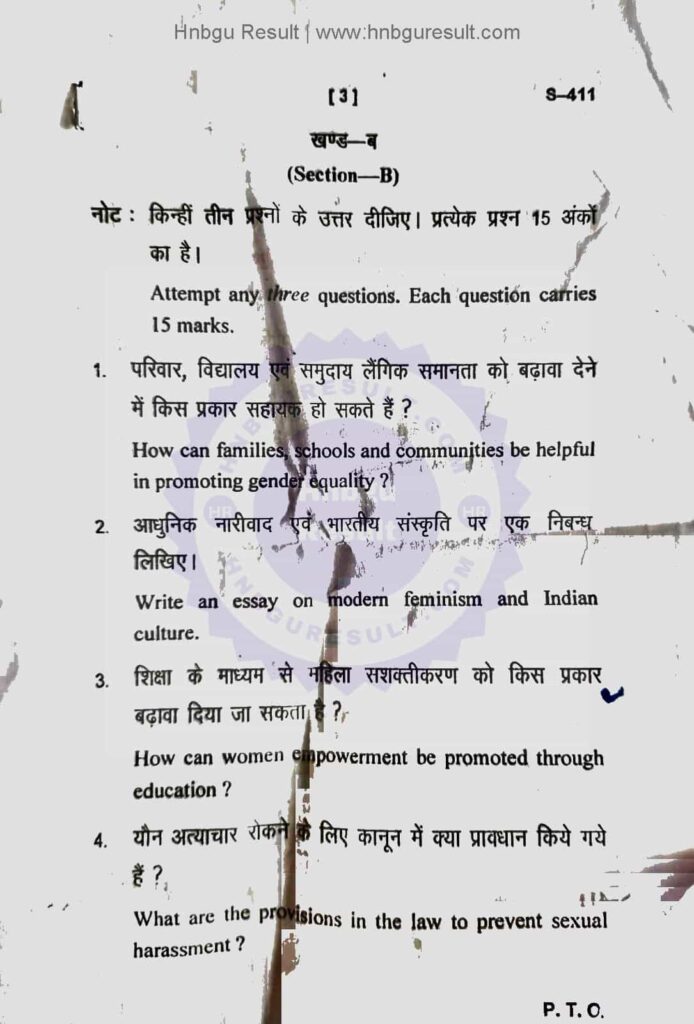 Hnbgu Result | www.hnbguresult.com
[ 3 ] S–411
खण्ड—ब
(Section—B)
नोट : किन्हीं तीन प्रश्नों के उत्तर दीजिए। प्रत्येक प्रश्न 15 अंकों
का है।
Attempt any three questions. Each question carries
15 marks.
1. परिवार, विद्यालय एवं समुदाय लैंगिक समानता को बढ़ावा देने
में किस प्रकार सहायक हो सकते हैं ?
How can families, schools and communities be helpful
in promoting gender equality ?
2. आधुनिक नारीवाद एवं भारतीय संस्कृति पर एक निबन्ध
लिखिए।
Write an essay on modern feminism and Indian
culture.
3. शिक्षा के माध्यम से महिला सशक्तीकरण को किस प्रकार
बढ़ावा दिया जा सकता है ?
How can women empowerment be promoted through
education ?
4. यौन अत्याचार रोकने के लिए कानून में क्या प्रावधान किये गये
हैं ?
What are the provisions in the law to prevent sexual
harassment ?
P. T. O.
HNBGURESULT.COM
HR
Hnbgu
Result
HR
HNBGURESULT.COM